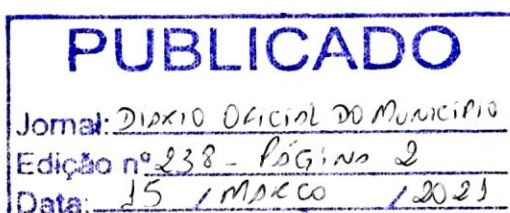 PUBLICADO
Jornal: DIÁRIO OFICIAL DO MUNICÍPIO
Edição nº 238 - PÁGINA 2
Data: 15 / MARCO / 2021